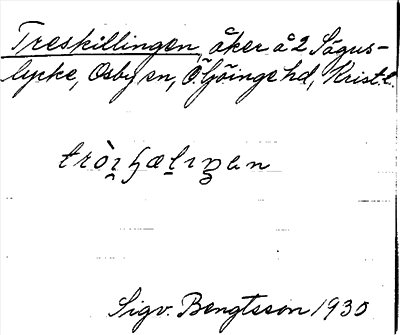 Treskillingen, åker å 2 Sågus-
lycke, Osby sn, Ö. Göinge hd, Krist. l.
Sigv. Bengtsson 1930